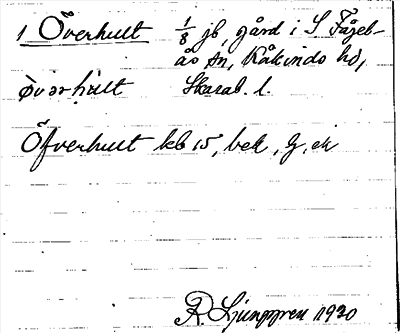 1 Överhult 1/8 jb, gård i S Fågel-
ås sn, Kåkinds hd,
öværhult Skarab. l.
Öfverhult kb 15, bek, G. ek
R. Ljunggren 1920